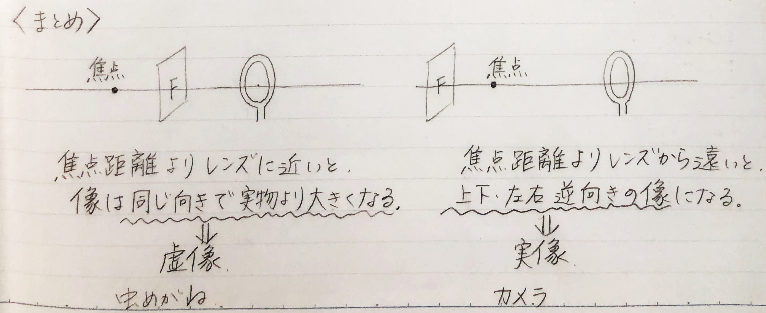 〈まとめ〉
焦点
F
焦点距離よりレンズに近いと、
像は同じ向きで実物より大きくなる。
虚像
虫めがね
焦点
F
焦点距離よりレンズから遠いと、
上下・左右逆向きの像になる。
実像
カメラ